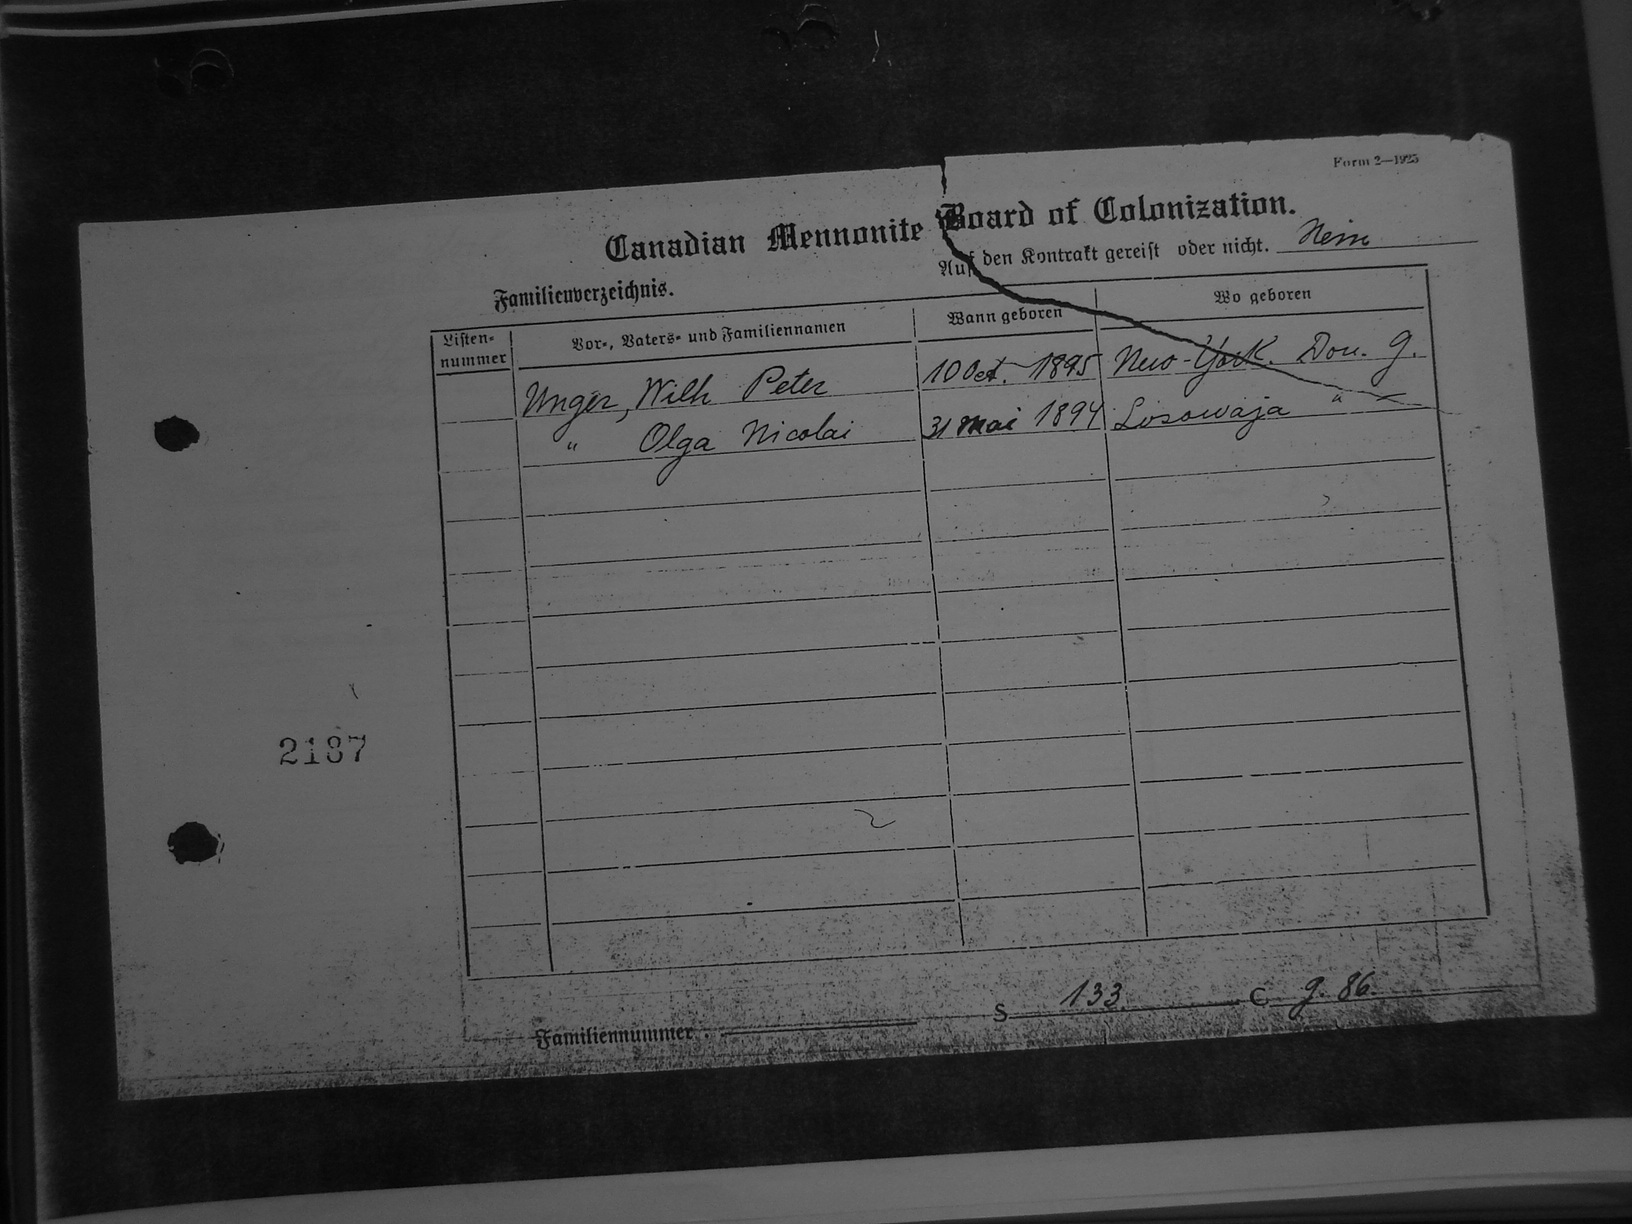 Form 2—1925
Canadian Mennonite Board of Colonization.
Auf den Kontrakt gereist oder nicht. Nein
Familienverzeichnis.
Listen-
nummer
Vor-, Vaters- und Familiennamen
Wann geboren
Wo geboren
Unger, Wilh Peter 10 Oct. 1895 New-York. Don. G.
" Olga Nicolai 31 Mai 1894 Losowaja " "
2187
Familiennummer : S 133. C g. 86.